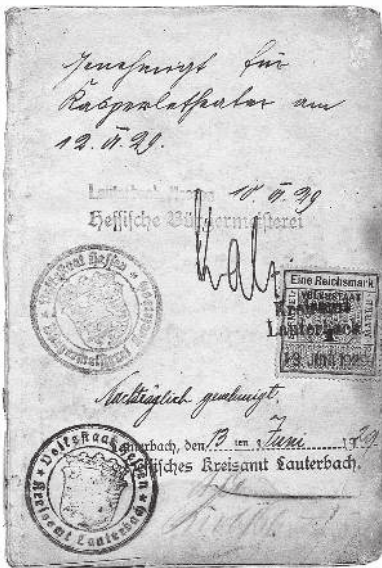 Genehmigt für
Kasperletheater am
12. VI. 29.
10. VI. 29
Hessische Bürgermeisterei
Eine Reichsmark
VOLKSSTAAT
Kreisamt
Lauterbach
13. JUNI 192
Nachträglich genehmigt.
Lauterbach, den 13 ten Juni 1929
Hessisches Kreisamt Lauterbach.
Volksstaat Hessen
Kreisamt Lauterbach